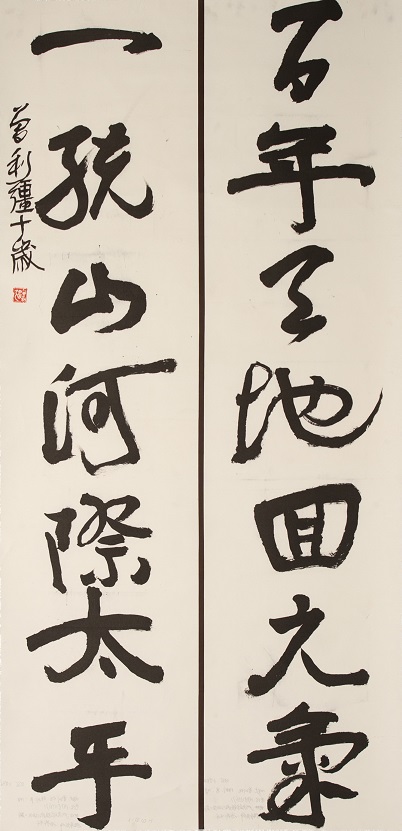 百年天地回元氣
一統山河際太平
曾利疆十歲